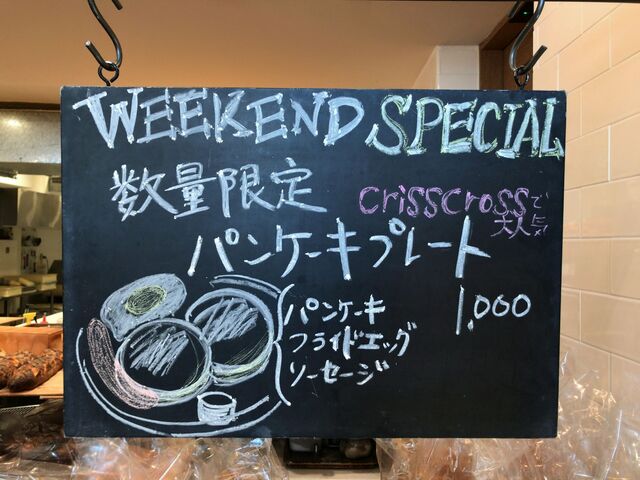 WEEKEND SPECIAL
数量限定
crisscrossで
大人気
パンケーキプレート
1,000
パンケーキ
フライドエッグ
ソーセージ